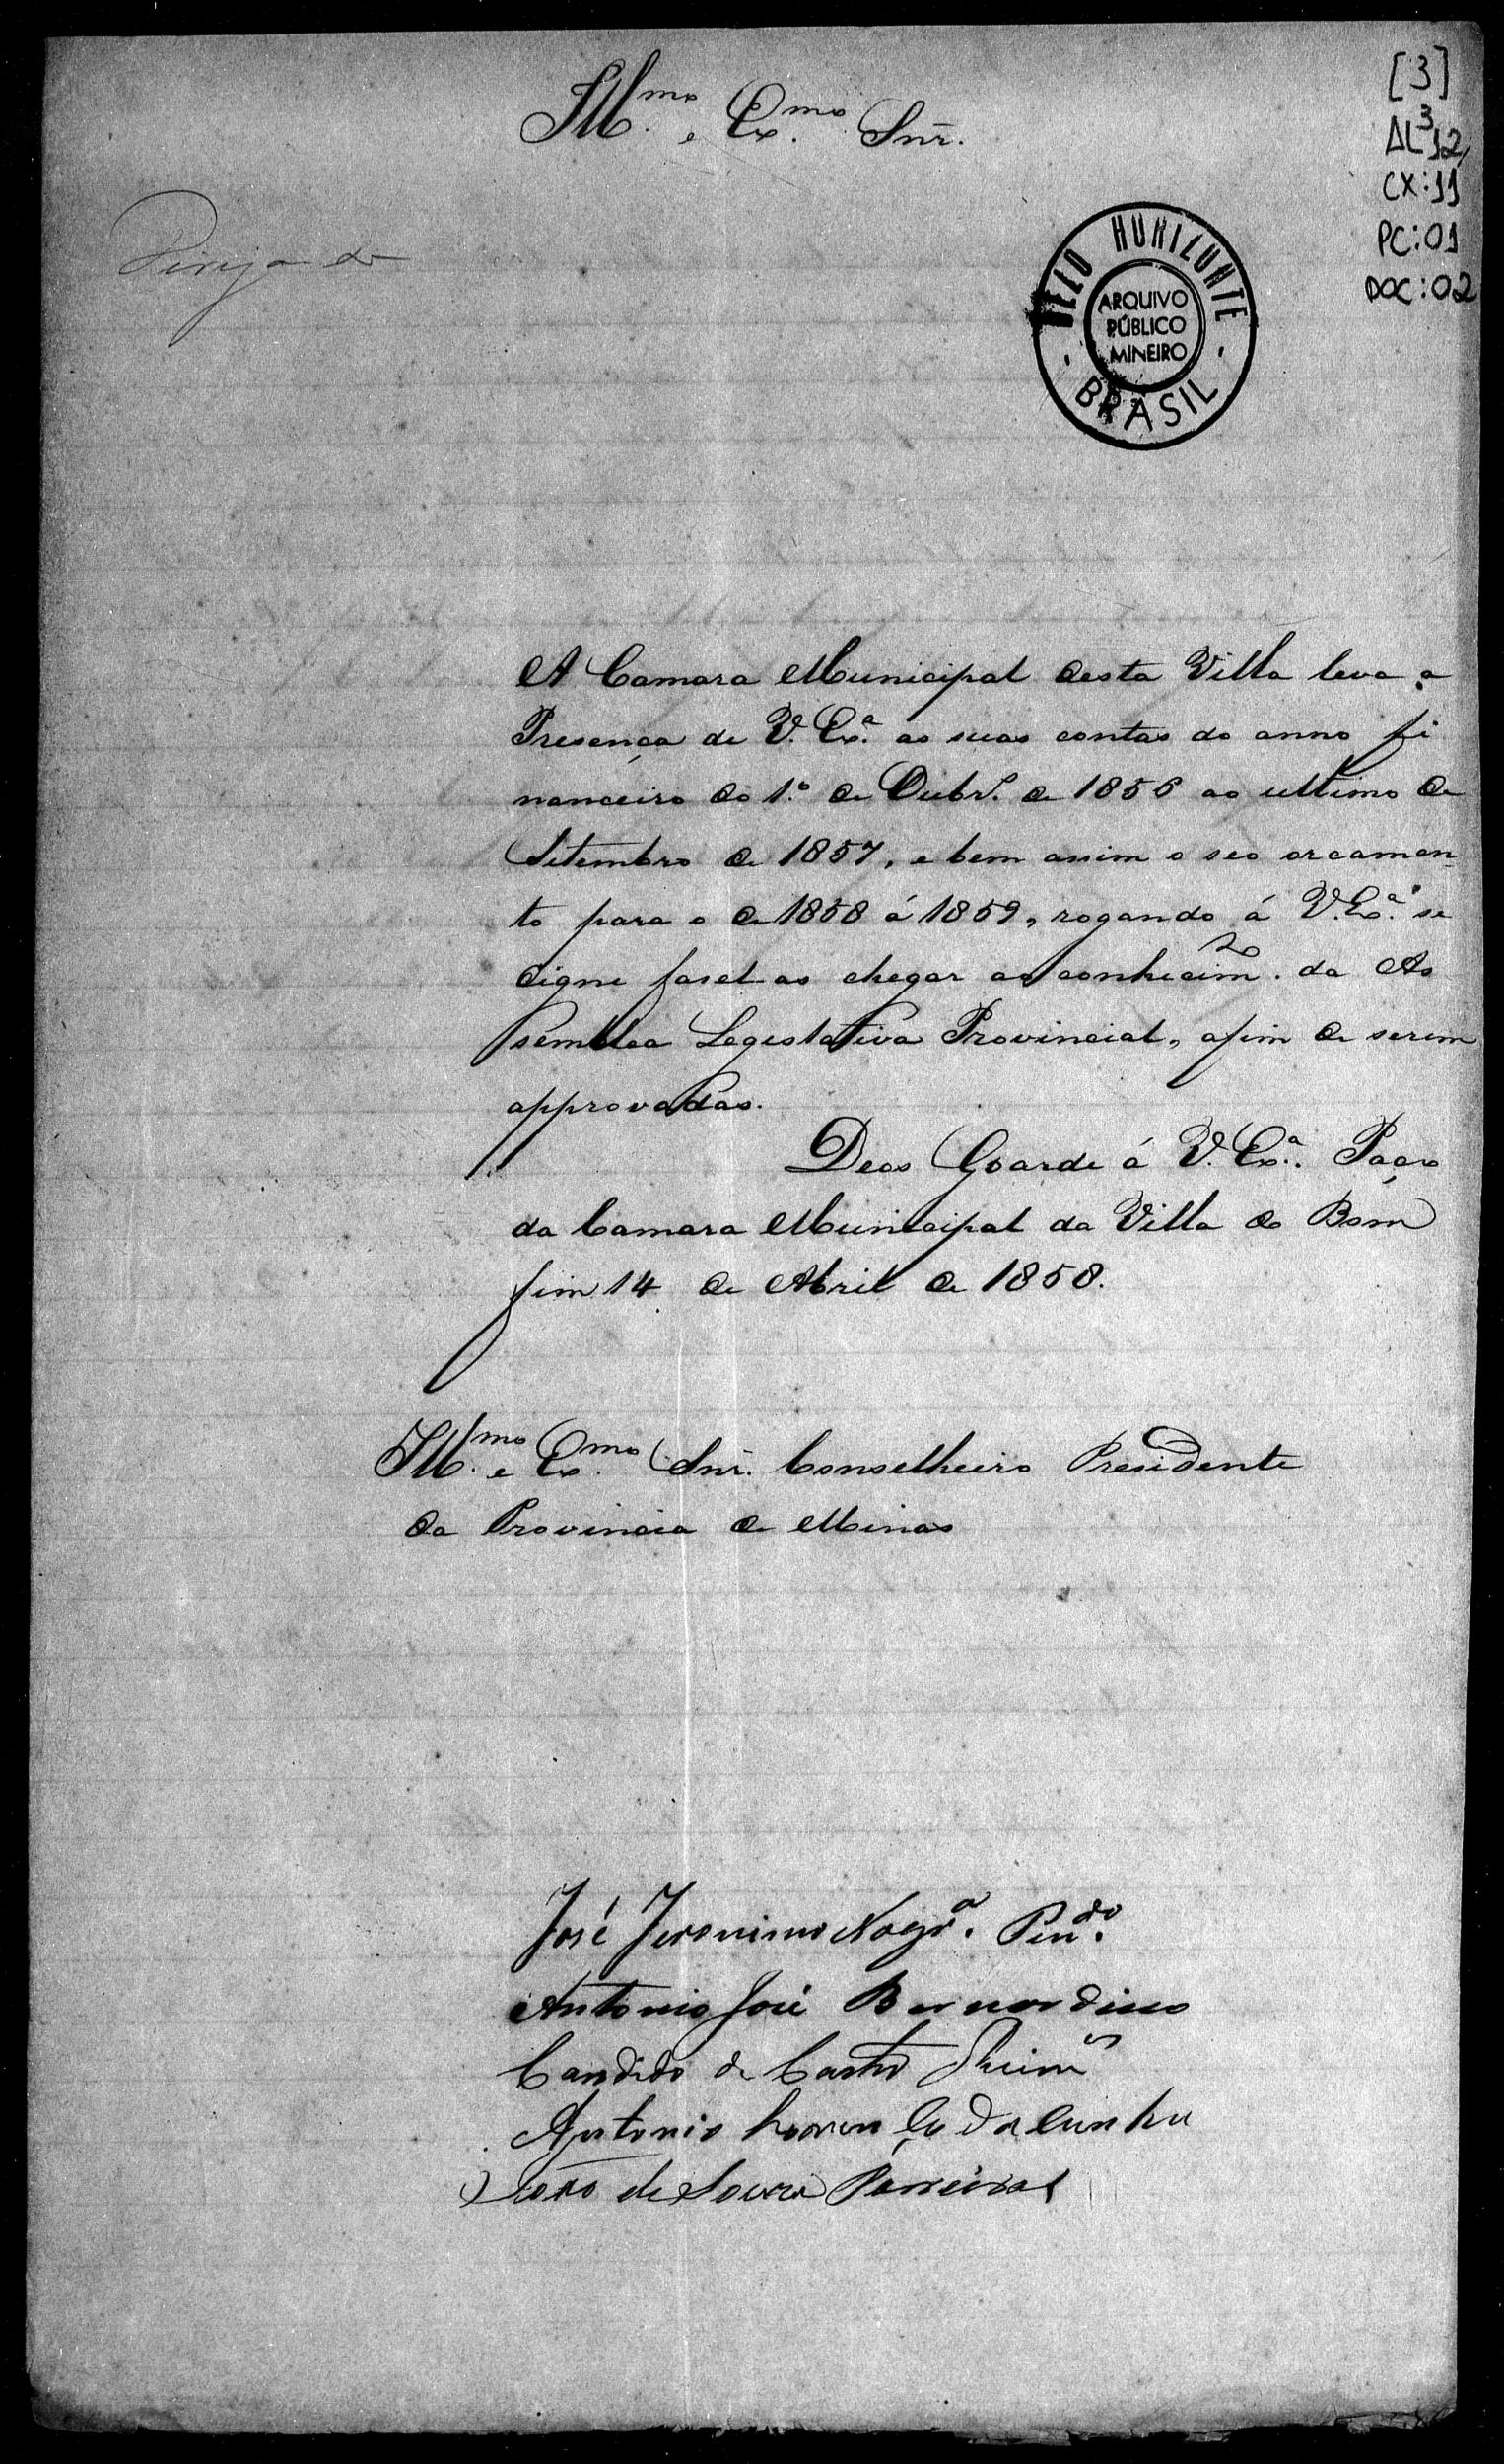 Illmo. e Exmo. Snr.
[3]
AL³12,
CX:11
PC:01
DOC:02
BELO HORIZONTE
ARQUIVO
PÚBLICO
MINEIRO
BRASIL
A Camara Municipal desta Villa leva a
Presença de V. Exa. as suas contas do anno fi
nanceiro do 1.º de Outbr.º de 1856 ao ultimo de
Setembro de 1857, e bem assim o seo orcamen
to para o de 1858 á 1859, rogando á V. Exa. se
digne fasel-as chegar ao conhecim.to da As
semblea Legislativa Provincial, afim de serem
approvadas.
Deos Goarde á V. Exa. Paço
da Camara Municipal da Villa do Bom
fim 14 de Abril de 1858.
Illmo. e Exmo. Snr. Conselheiro Presidente
da Provincia de Minas
José Jeronimo Nogr.a
Antonio José Bernardino
Candido de Castro
Antonio Lourenço da Cunha
João de Souza Parreiras